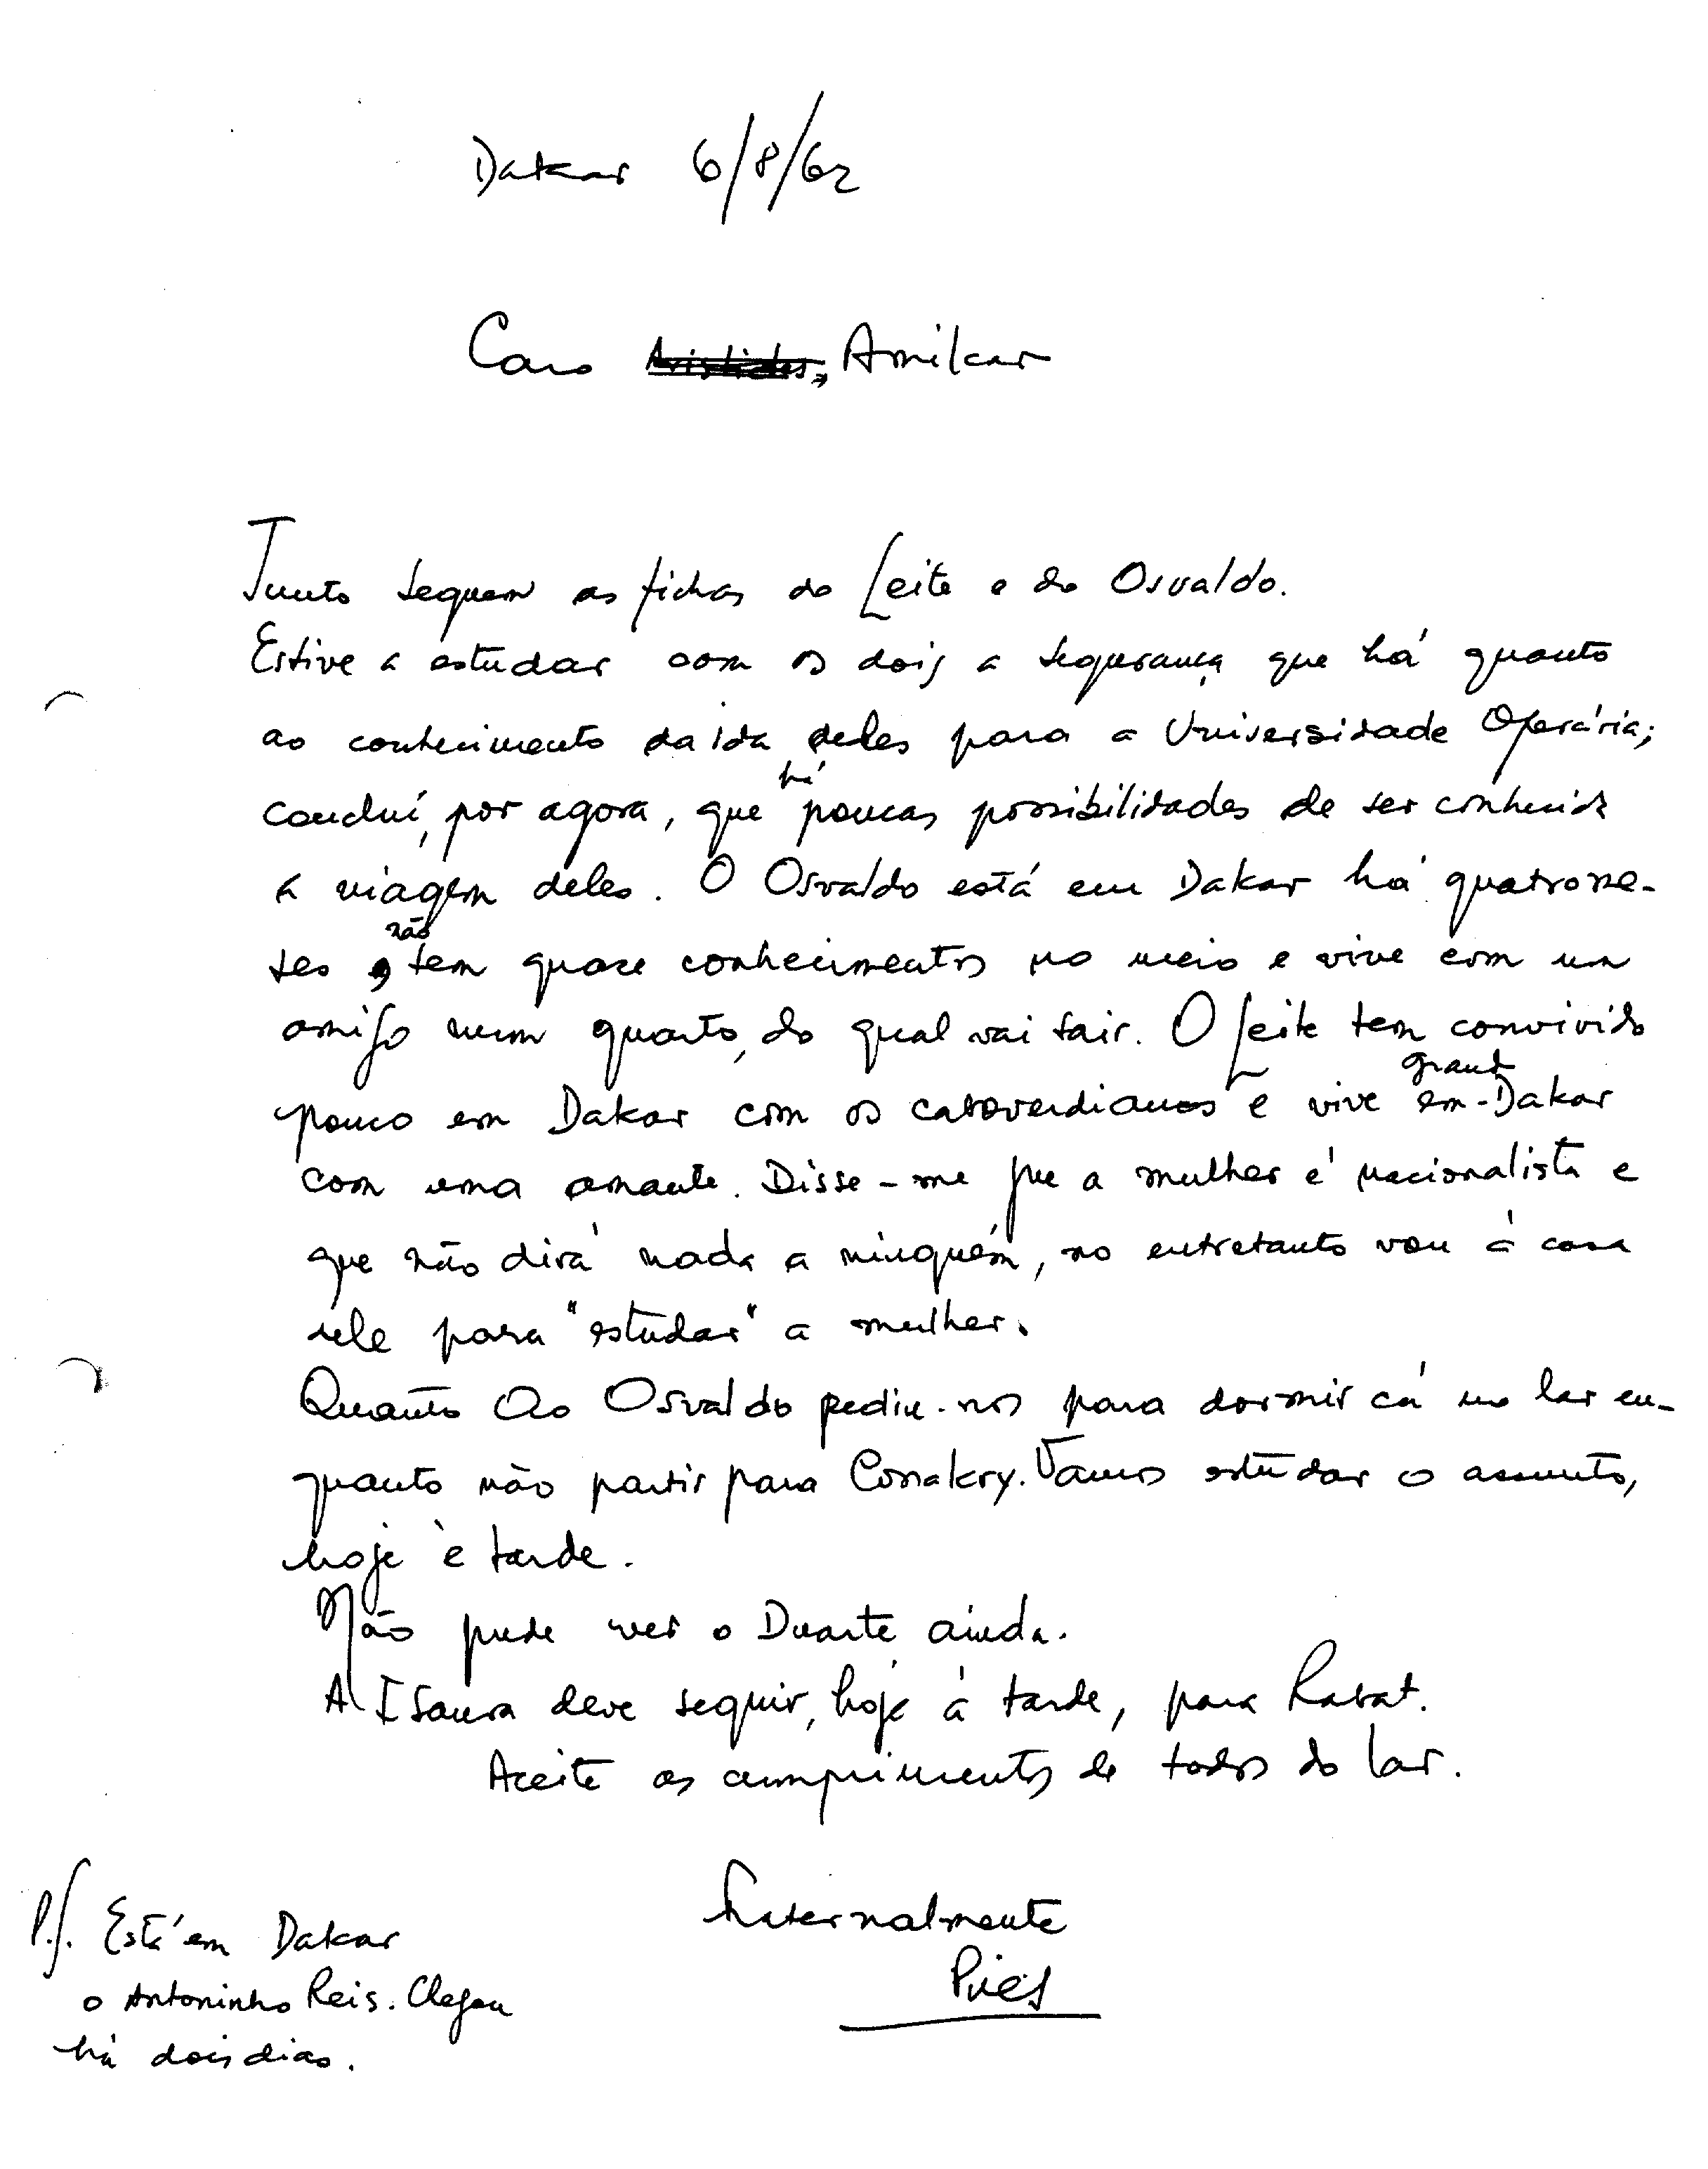 Dakar 6/8/62
Caro Aristides, Amilcar
Junto seguem as fichas do Leite e do Osvaldo.
Estive a estudar com os dois a segurança que há quanto
ao conhecimento da ida deles para a Universidade Operária;
concluí, por agora, que há poucas possibilidades de ser conhecida
a viagem deles. O Osvaldo está em Dakar há quatro me-
ses, não tem quase conhecimentos no meio e vive com um
amigo num quarto, do qual vai sair. O Leite tem convivido
pouco em Dakar com os caboverdianos e vive em grand-Dakar
com uma amante. Disse-me que a mulher é nacionalista e
que não dirá nada a ninguém, no entretanto vou à casa
dele para "estudar" a mulher.
Quanto ao Osvaldo pediu-nos para dormir cá no lar en-
quanto não partir para Conakry. Vamos estudar o assunto,
hoje à tarde.
Não pude ver o Duarte ainda.
A Isaura deve seguir, hoje à tarde, para Rabat.
Aceite os cumprimentos de todos do lar.
Fraternalmente
Pires
P.S. Está em Dakar
o Antoninho Reis. Chegou
há dois dias.